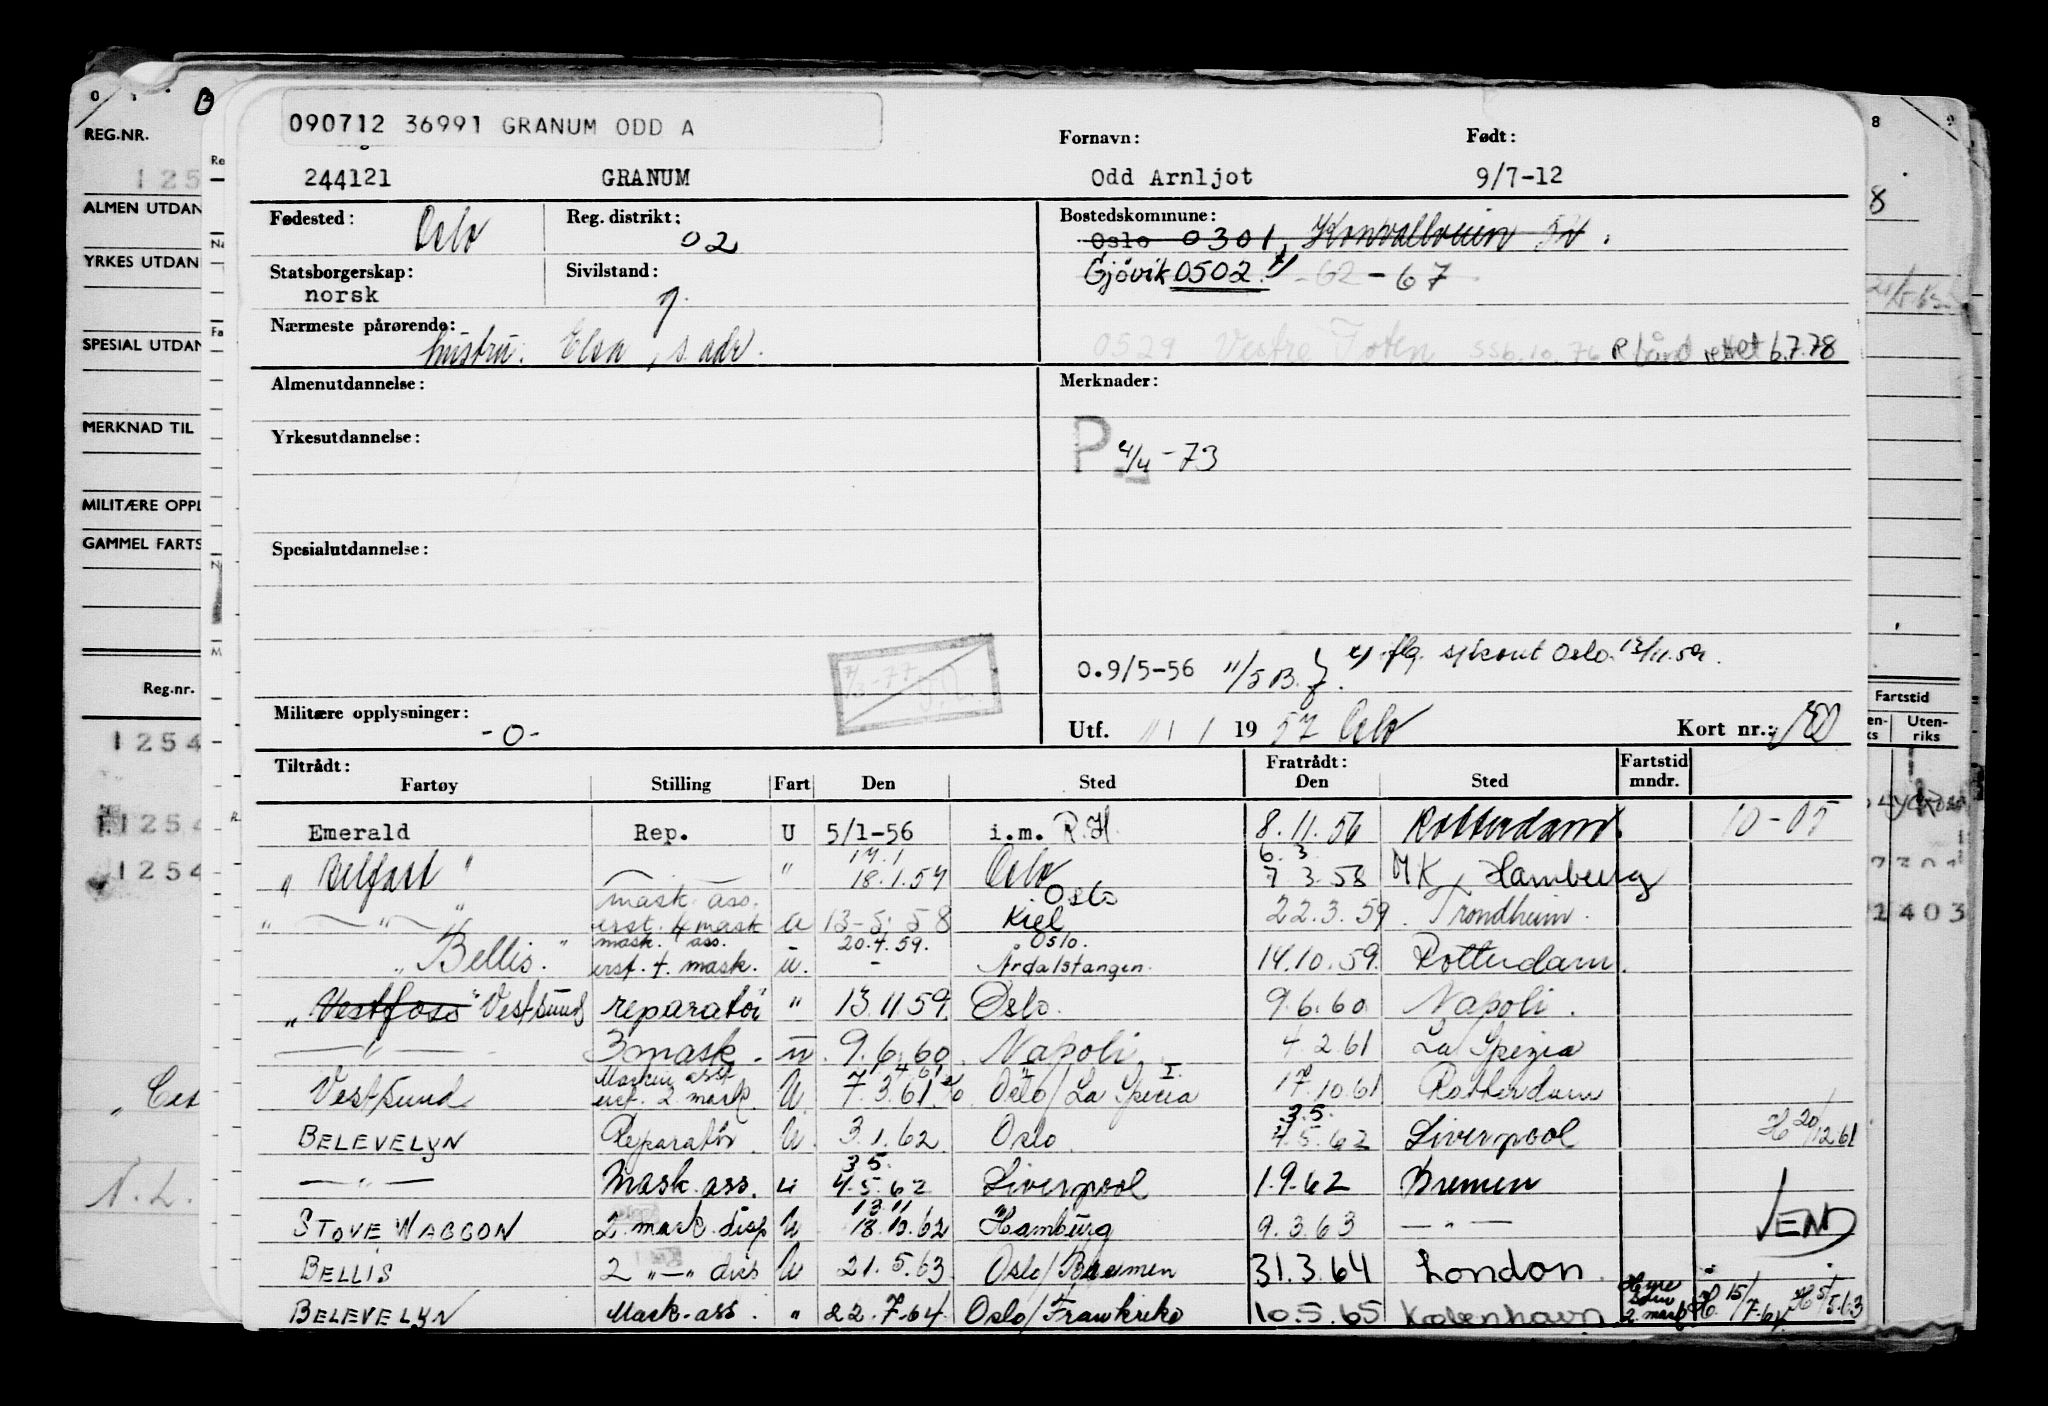 090712 36991 GRANUM ODD A
Fornavn: Født:
244121 GRANUM Odd Arnljot 9/7-12
Fødested: Oslo Reg. distrikt: 02 Bostedskommune:
Oslo 0301, Konvallveien
Statsborgerskap: norsk Sivilstand: g. Gjövik 0502 -62-67
Nærmeste pårørende: hustru. Elsa, s. adr. 0529 Vestre Toten 6.10.76 R bånd rettet 6.7.78
Almenutdannelse: Merknader:
Yrkesutdannelse: P 4/4-73
Spesialutdannelse:
0.9/5-56 11/5 B. flg. sjkont Oslo 13/11.59.
Militære opplysninger: -0- Utf. 11/1 1957 Oslo Kort nr.:
Tiltrådt: Fratrådt: Fartstid
Fartøy Stilling Fart Den Sted Den Sted mndr.
Emerald Rep. U 5/1-56 i.m. R.H. 8.11.56 Rotterdam. 10-05
17.1 6.3.
" Belfast " " 18.1.57 Oslo 7 3.58 MK Hamburg
mask. ass. Oslo
" — " — " erst. 4 mask 13-5.58 Kiel 22.3.59. Trondheim.
mask. ass. 20.4.59. Oslo.
" Bellis. " erst. 4. mask. u. - Årdalstangen. 14.10.59 Rotterdam.
" Vestfoss " Vestsund reparatör " 13.11 59. Oslo. 9.6.60 Napoli.
— " — 3 mask. u. 9.6.60. Napoli. 4.2.61 La Spezia
Maskin asst
Vestsund erst. 2 mask. U. 7.3.61. Oslo/La Spezia 17.10.61 Rotterdam
3.5.
BELEVELYN Reparatör U. 3.1.62 Oslo. 4.5.62 Liverpool H 20/12 61
3 5.
— " — Mask. ass. u 4.5.62 Liverpool 1.9.62 Bremen
13 11
STOVE WAGGON 2. mask. disp U 18.10.62 Hamburg 9.3.63 — " — VEND
BELLIS 2 " — " disp U 21.5.63. Oslo/Bremen 31.3.64 London.
BELEVELYN Mask-ass. " 22.7.64. Oslo/Frankrike 10.5.65 København Hyre som 2. mask H. 15/7-64 H 5/5.63
REG.NR.
125
ALMEN UTDAN
YRKES UTDAN
SPESIAL UTDAN
MERKNAD TIL
MILITÆRE OPPL
GAMMEL FARTS
Reg.nr.
1254
1254
1254
N. L.
8
Fartstid
Uten-
riks
1403